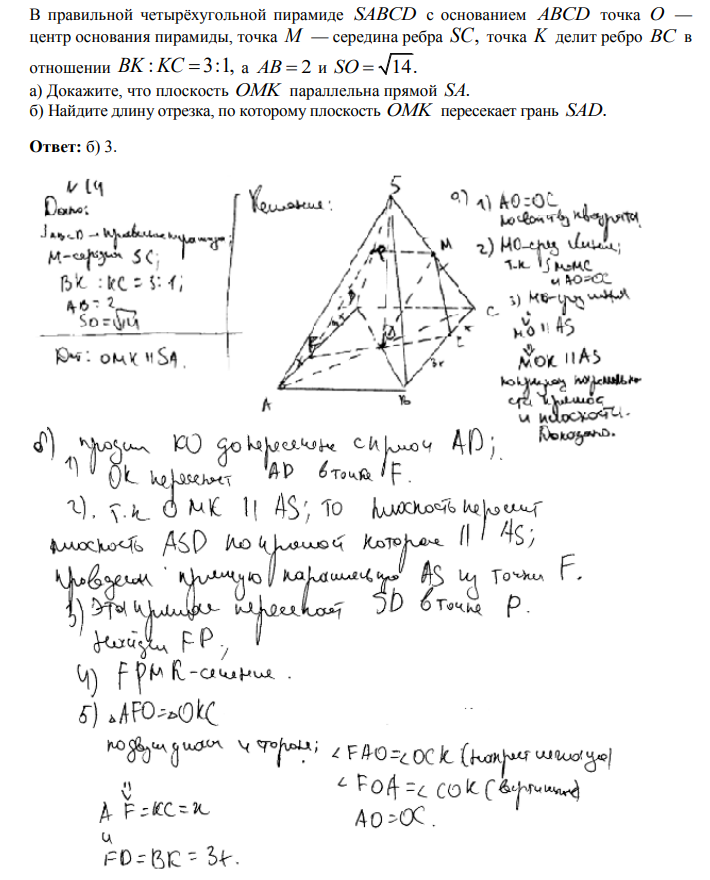 В правильной четырёхугольной пирамиде SABCD с основанием ABCD точка O —
центр основания пирамиды, точка M — середина ребра SC, точка K делит ребро BC в
отношении BK : KC = 3:1, а AB = 2 и SO = √14.
а) Докажите, что плоскость OMK параллельна прямой SA.
б) Найдите длину отрезка, по которому плоскость OMK пересекает грань SAD.
Ответ: б) 3.
N 14
Дано:
SABCD – правильная
M-середин SC;
BK : KC = 3:1;
AB = 2
SO = √14
Решение:
S
M
C
A
B
3x
x
а) 1) AO=OC
по свойству квадрата
2) MO-сред линия;
т.к SM=MC
и AO=OC
3) MO-сред линия
⇓
MO || AS
⇓
MOK || AS
прямой
и плоскости.
Доказано.
Дот: OMK || SA.
б) продлим KO до пересечене с прямой AD;
1) OK пересекает AD в точке F.
2). т.к OMK || AS; то плоскость пересечт
плоскость ASD по прямой которая || AS;
проведем прямую параллельную AS из точки F.
3) Эта прямая пересекает SD в точке P.
Найдем FP;
4) FPMK-сечение.
5) △AFO=△OKC
по двум углам и стороне; ∠FAO=∠OCK (
∠FOA=∠COK (вертикальные)
AO=OC.
⇓
AF=KC=x
и
FD=BK=3x.